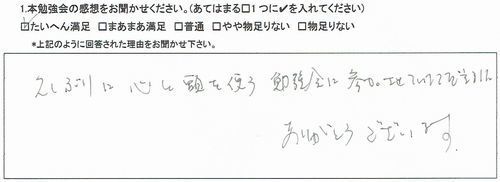 1.本勉強会の感想をお聞かせください。(あてはまる□1つに✔を入れてください)
☑たいへん満足 □まあまあ満足 □普通 □やや物足りない □物足りない
*上記のように回答された理由をお聞かせ下さい。
久しぶりに 心と頭を使う 勉強会に参加させていただきました
ありがとうございます。